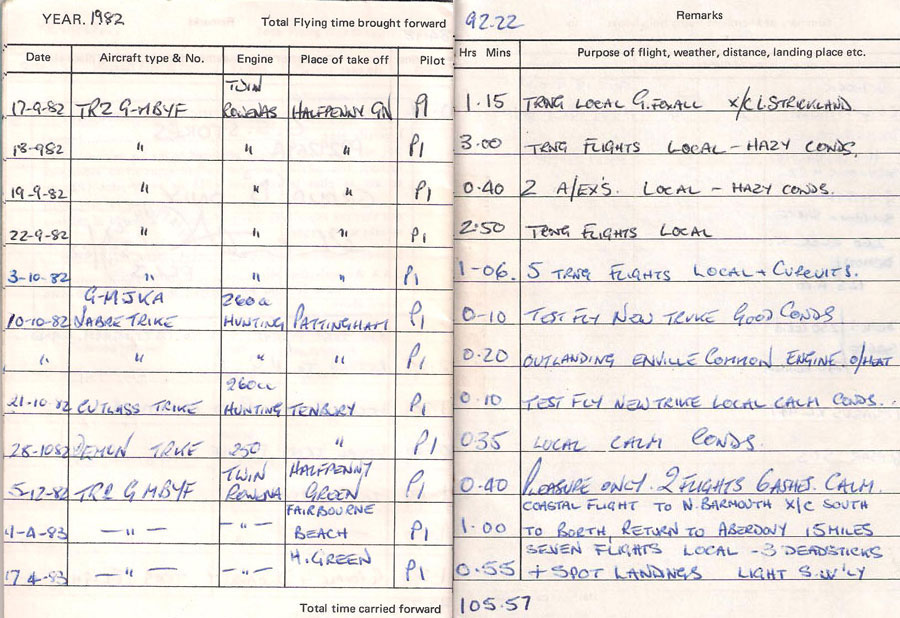 YEAR. 1982 Total Flying time brought forward 92.22 Remarks
Date Aircraft type & No. Engine Place of take off Pilot Hrs Mins Purpose of flight, weather, distance, landing place etc.
TWIN
17-9-82 TR2 G-MBYF ROWENAS HALFPENNY GN P1 1.15 TRNG LOCAL G.FOXALL X/C L STRICKLAND
18-982 " " " P1 3.00 TRNG FLIGHTS LOCAL - HAZY CONDS.
19-9-82 " " " P1 0.40 2 A/EX'S. LOCAL - HAZY CONDS.
22-9-82 " " " P1 2.50 TRNG FLIGHTS LOCAL
3-10-82 " " " P1 1-06. 5 TRNG FLIGHTS LOCAL + CIRCUITS.
G-MJKA 260cc
10-10-82 SABRE TRIKE HUNTING PATTINGHAM P1 0-10 TEST FLY NEW TRIKE GOOD CONDS
" " " " P1 0.20 OUTLANDING ENVILLE COMMON ENGINE O/HEAT
260cc
21-10-82 CUTLASS TRIKE HUNTING TENBURY P1 0.10 TEST FLY NEW TRIKE LOCAL CALM CONDS..
28-1082 DEMON TRIKE 250 " P1 0.35 LOCAL CALM CONDS.
TWIN HALFPENNY
5-12-82 TR2 G MBYF ROWENA GREEN P1 0.40 PLEASURE ONLY. 2 FLIGHTS CALM.
FAIRBOURNE COASTAL FLIGHT TO N. BARMOUTH X/C SOUTH
4-4-83 — " — - " - BEACH P1 1.00 TO BORTH, RETURN TO ABERDOVY 15 MILES
H.GREEN SEVEN FLIGHTS LOCAL - 3 DEADSTICKS
17 4-83 — " — - " - P1 0.55 + SPOT LANDINGS LIGHT S.W'LY
Total time carried forward 105.57